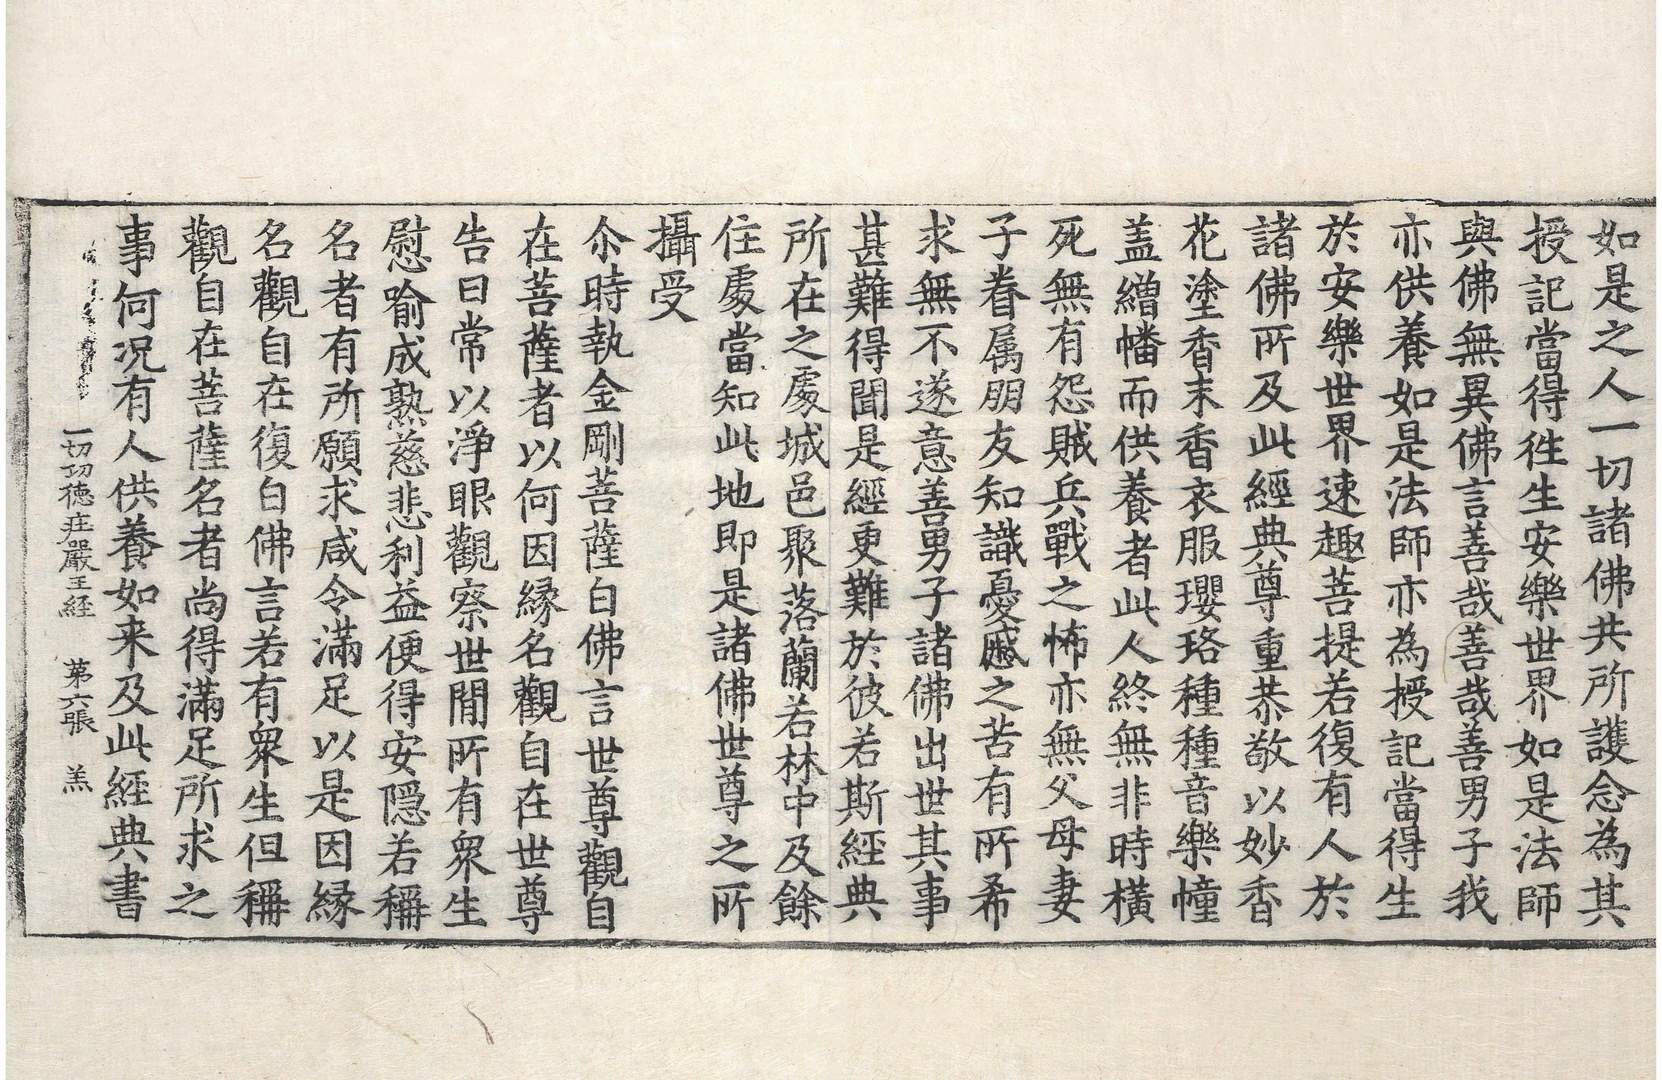 如是之人一切諸佛共所護念為其
授記當得徃生安樂世界如是法師
與佛無異佛言善哉善哉善男子我
亦供養如是法師亦為授記當得生
於安樂世界速趣菩提若復有人於
諸佛所及此經典尊重恭敬以妙香
花塗香末香衣服瓔珞種種音樂幢
盖繒幡而供養者此人終無非時橫
死無有怨賊兵戰之怖亦無父母妻
子眷属朋友知識憂慼之苦有所希
求無不遂意善男子諸佛出世其事
甚難得聞是經更難於彼若斯經典
所在之處城邑聚落蘭若林中及餘
住處當知此地即是諸佛世尊之所
攝受
尒時執金剛菩薩白佛言世尊觀自
在菩薩者以何因緣名觀自在世尊
告曰常以淨眼觀察世間所有衆生
慰喻成熟慈悲利益便得安隱若稱
名者有所願求咸令滿足以是因縁
名觀自在復白佛言若有衆生但稱
觀自在菩薩名者尚得滿足所求之
事何况有人供養如来及此經典書
一切功徳庄嚴王経　第六張　羔